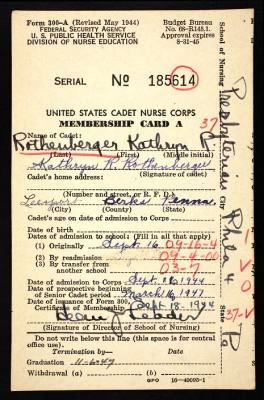 Form 300-A (Revised May 1944)
FEDERAL SECURITY AGENCY
U. S. PUBLIC HEALTH SERVICE
DIVISION OF NURSE EDUCATION
Budget Bureau
No. 68-R145.1.
Approval expires
8-31-45
SERIAL No 185614
UNITED STATES CADET NURSE CORPS
MEMBERSHIP CARD A
37
Name of Cadet:
Rothenberger Kathryn R.
(Last) (First) (Middle initial)
Kathryn R. Rothenberger
(Signature of cadet)
Cadet's home address:
(Number and street, or R. F. D.)
Leesport Berks Penna
(City) (County) (State)
Cadet's age on date of admission to Corps
Date of birth
Dates of admission to school (Fill in all that apply)
(1) Originally Sept. 16 09-16-4
(2) By readmission 09-4-00
(3) By transfer from another school 03-7
Date of admission to Corps Sept. 16, 1944
Date of prospective beginning Senior Cadet period March 16, 1947
Date of issuance of Form 300, Certificate of Membership Sept 18 - 1944
(Signature of Director of School of Nursing)
Do not write below this line (this space is for central office use).
Termination by Date
Graduation 11-6-47
Withdrawal (a) (b)
GPO 16-40095-1
School of Nursing Presbyterian
City Phila 4
State P
37-V
1
V
0